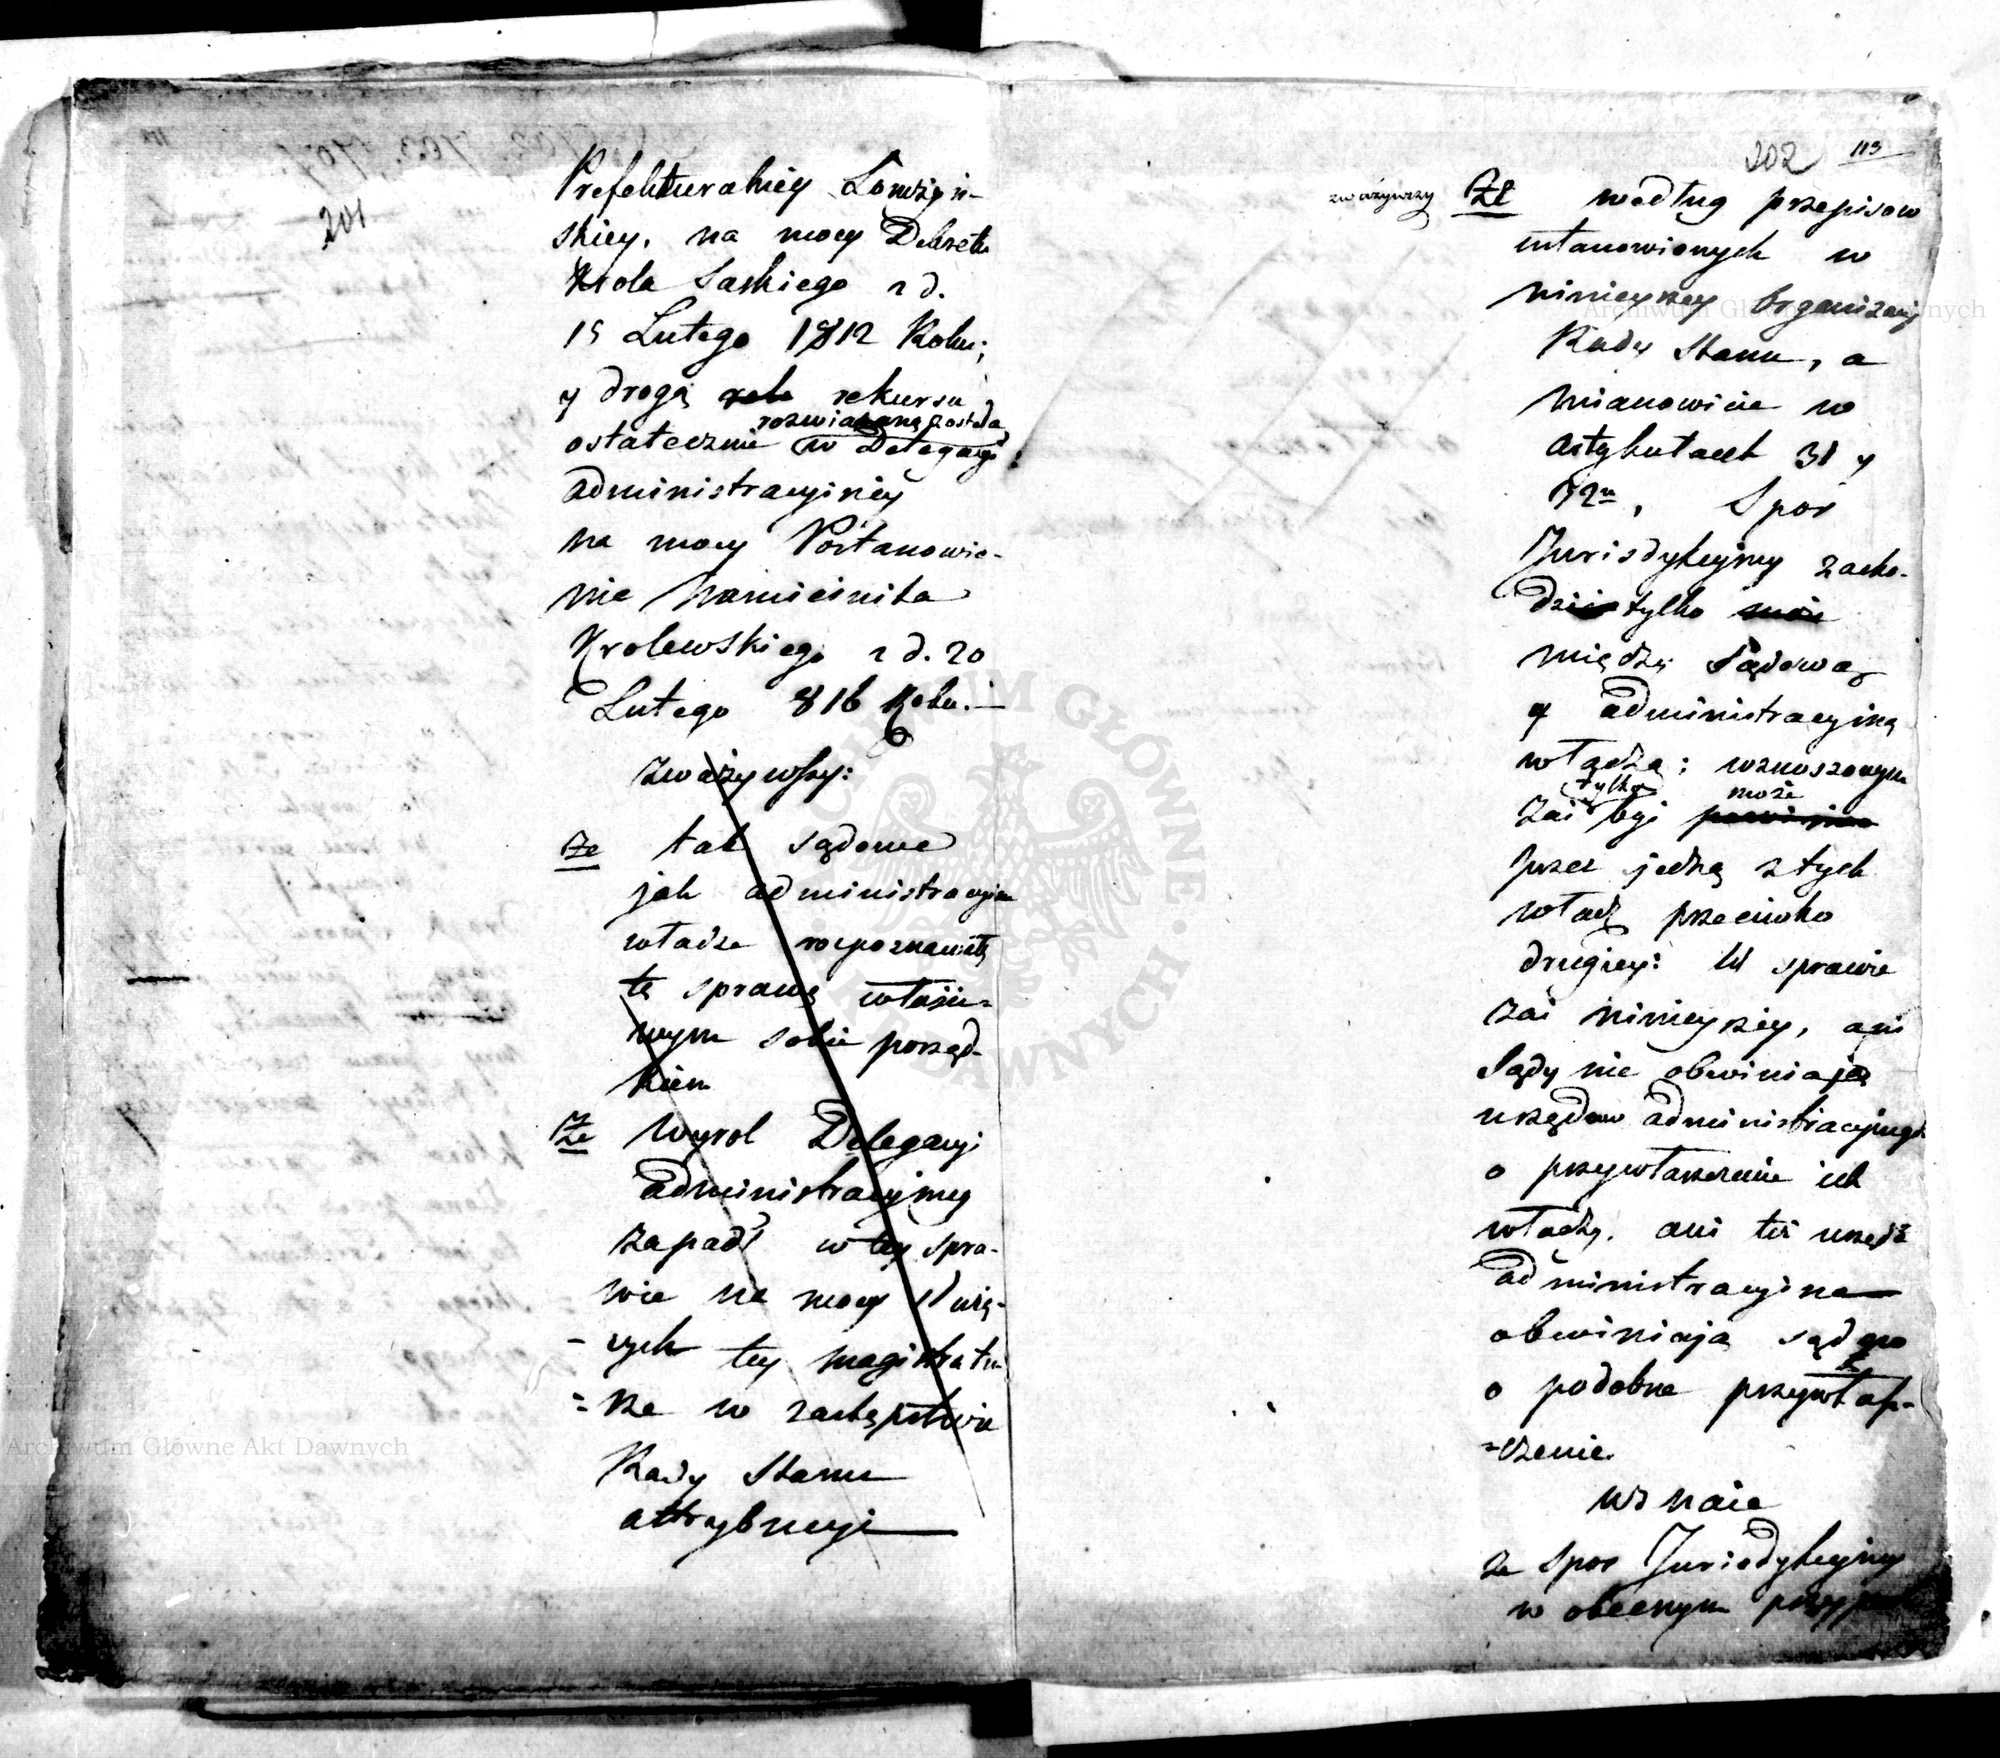 201
Prefekturalney Łomżyń-
skiey, na mocy Dekretu
Króla Saskiego z d.
15 Lutego 1812 Roku;
y drogą rekursu
rozwiązaną została
ostatecznie w Delegacyi
administracyiney
na mocy Postanowie-
nie Namiesnika
Krolewskiego z d. 20
Lutego 816 Roku.—
zważywszy:
że tak sądowe
jak administracyine
władze rozpoznawały
tę sprawę właści-
wym sobie porząd-
kiem
Że Wyrok Delegacyi
administracyjney
zapadł w tey spra-
wie na mocy służą-
-cych tey magistratu
=rze w zastępstwie
Rady Stanu
attrybucyi
202 113
zważywszy Że według przepisow
ustanowionych w
ninieyszey Organizacyi
Rady Stanu, a
mianowicie w
Artykułach 31 y
32m, Spor
Jurisdykcyjny zacho-
dzi tylko
między Sądową
y administracyiną
władzą; wznoszonym
tylko może
zaś byś
przez jedną z tych
władz przeciwko
drugiey: W sprawie
zaś ninieyszey, ani
Sądy nie obwiniają
urzędow administracyinych
o przywłaszczenie ich
władzy, ani też urzęda
administracyine
obwiniają sądow
o podobne przywłasz-
=czenie.
uznaie
że Spor Jurisdykcyjny
w obecnym